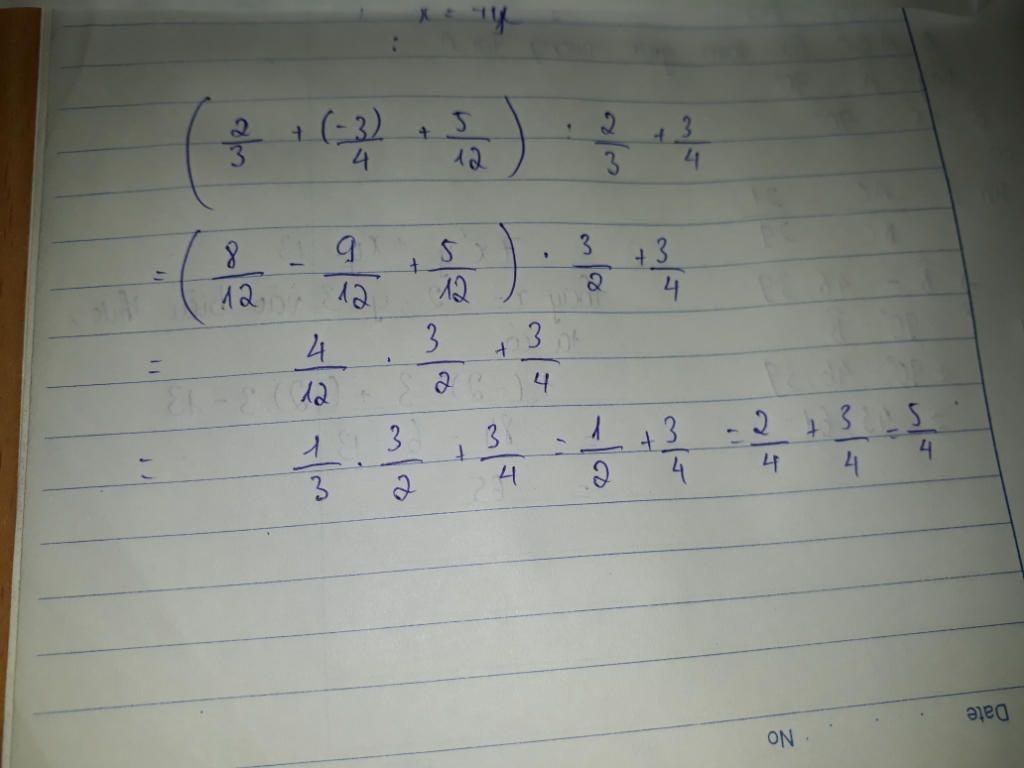 x = 4y
:
( 2/3 + (-3)/4 + 5/12 ) : 2/3 + 3/4
= ( 8/12 - 9/12 + 5/12 ) · 3/2 + 3/4
= 4/12 · 3/2 + 3/4
= 1/3 · 3/2 + 3/4 = 1/2 + 3/4 = 2/4 + 3/4 = 5/4
Date
No